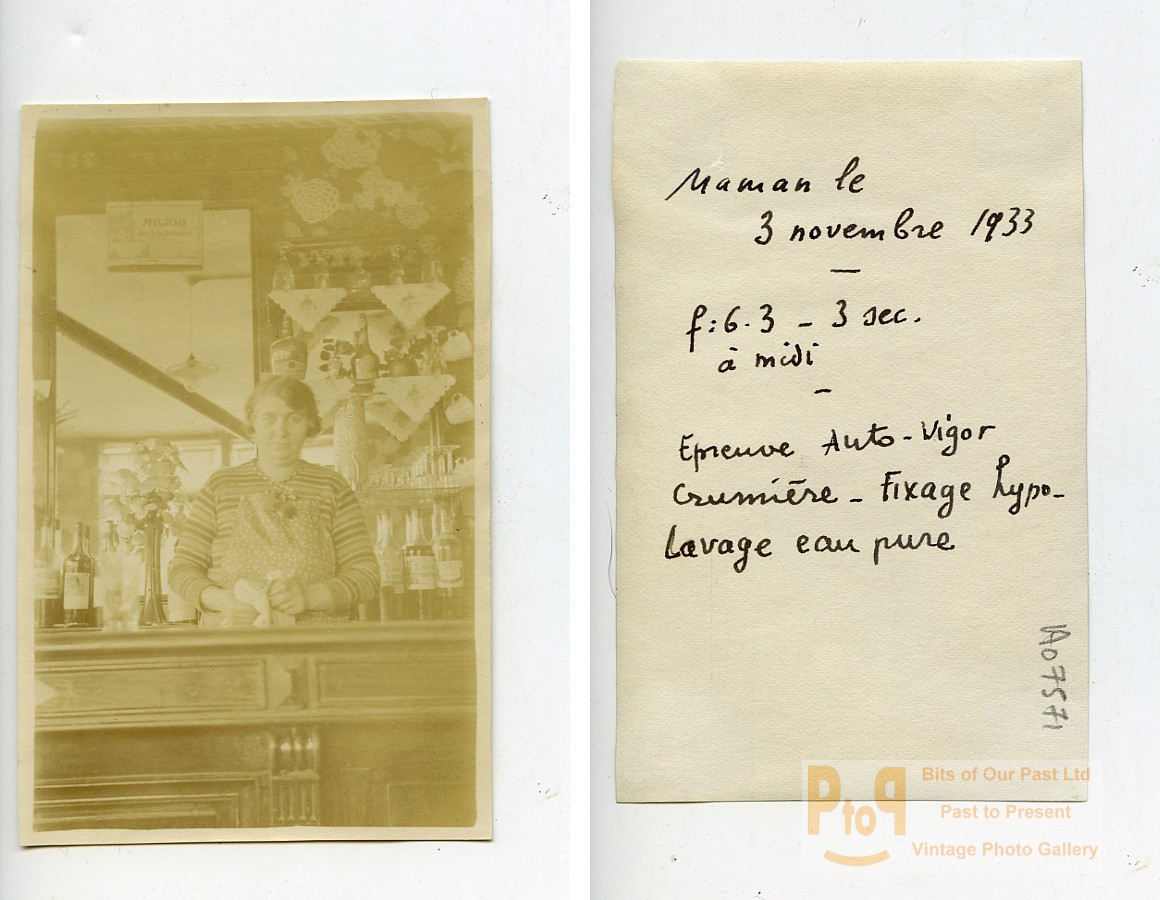 Maman le
3 novembre 1933
—
f:6.3 - 3 sec.
à midi
-
Epreuve Auto-Vigor
Crumière - Fixage hypo-
Lavage eau pure
IA07571
PtoP
Bits of Our Past Ltd
Past to Present
Vintage Photo Gallery